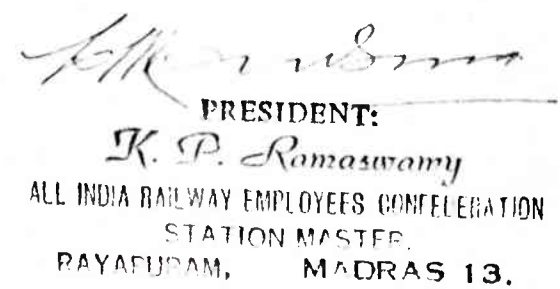 PRESIDENT:
K. P. Ramaswamy
ALL INDIA RAILWAY EMPLOYEES CONFEDERATION
STATION MASTER.
RAYAPURAM, MADRAS 13.